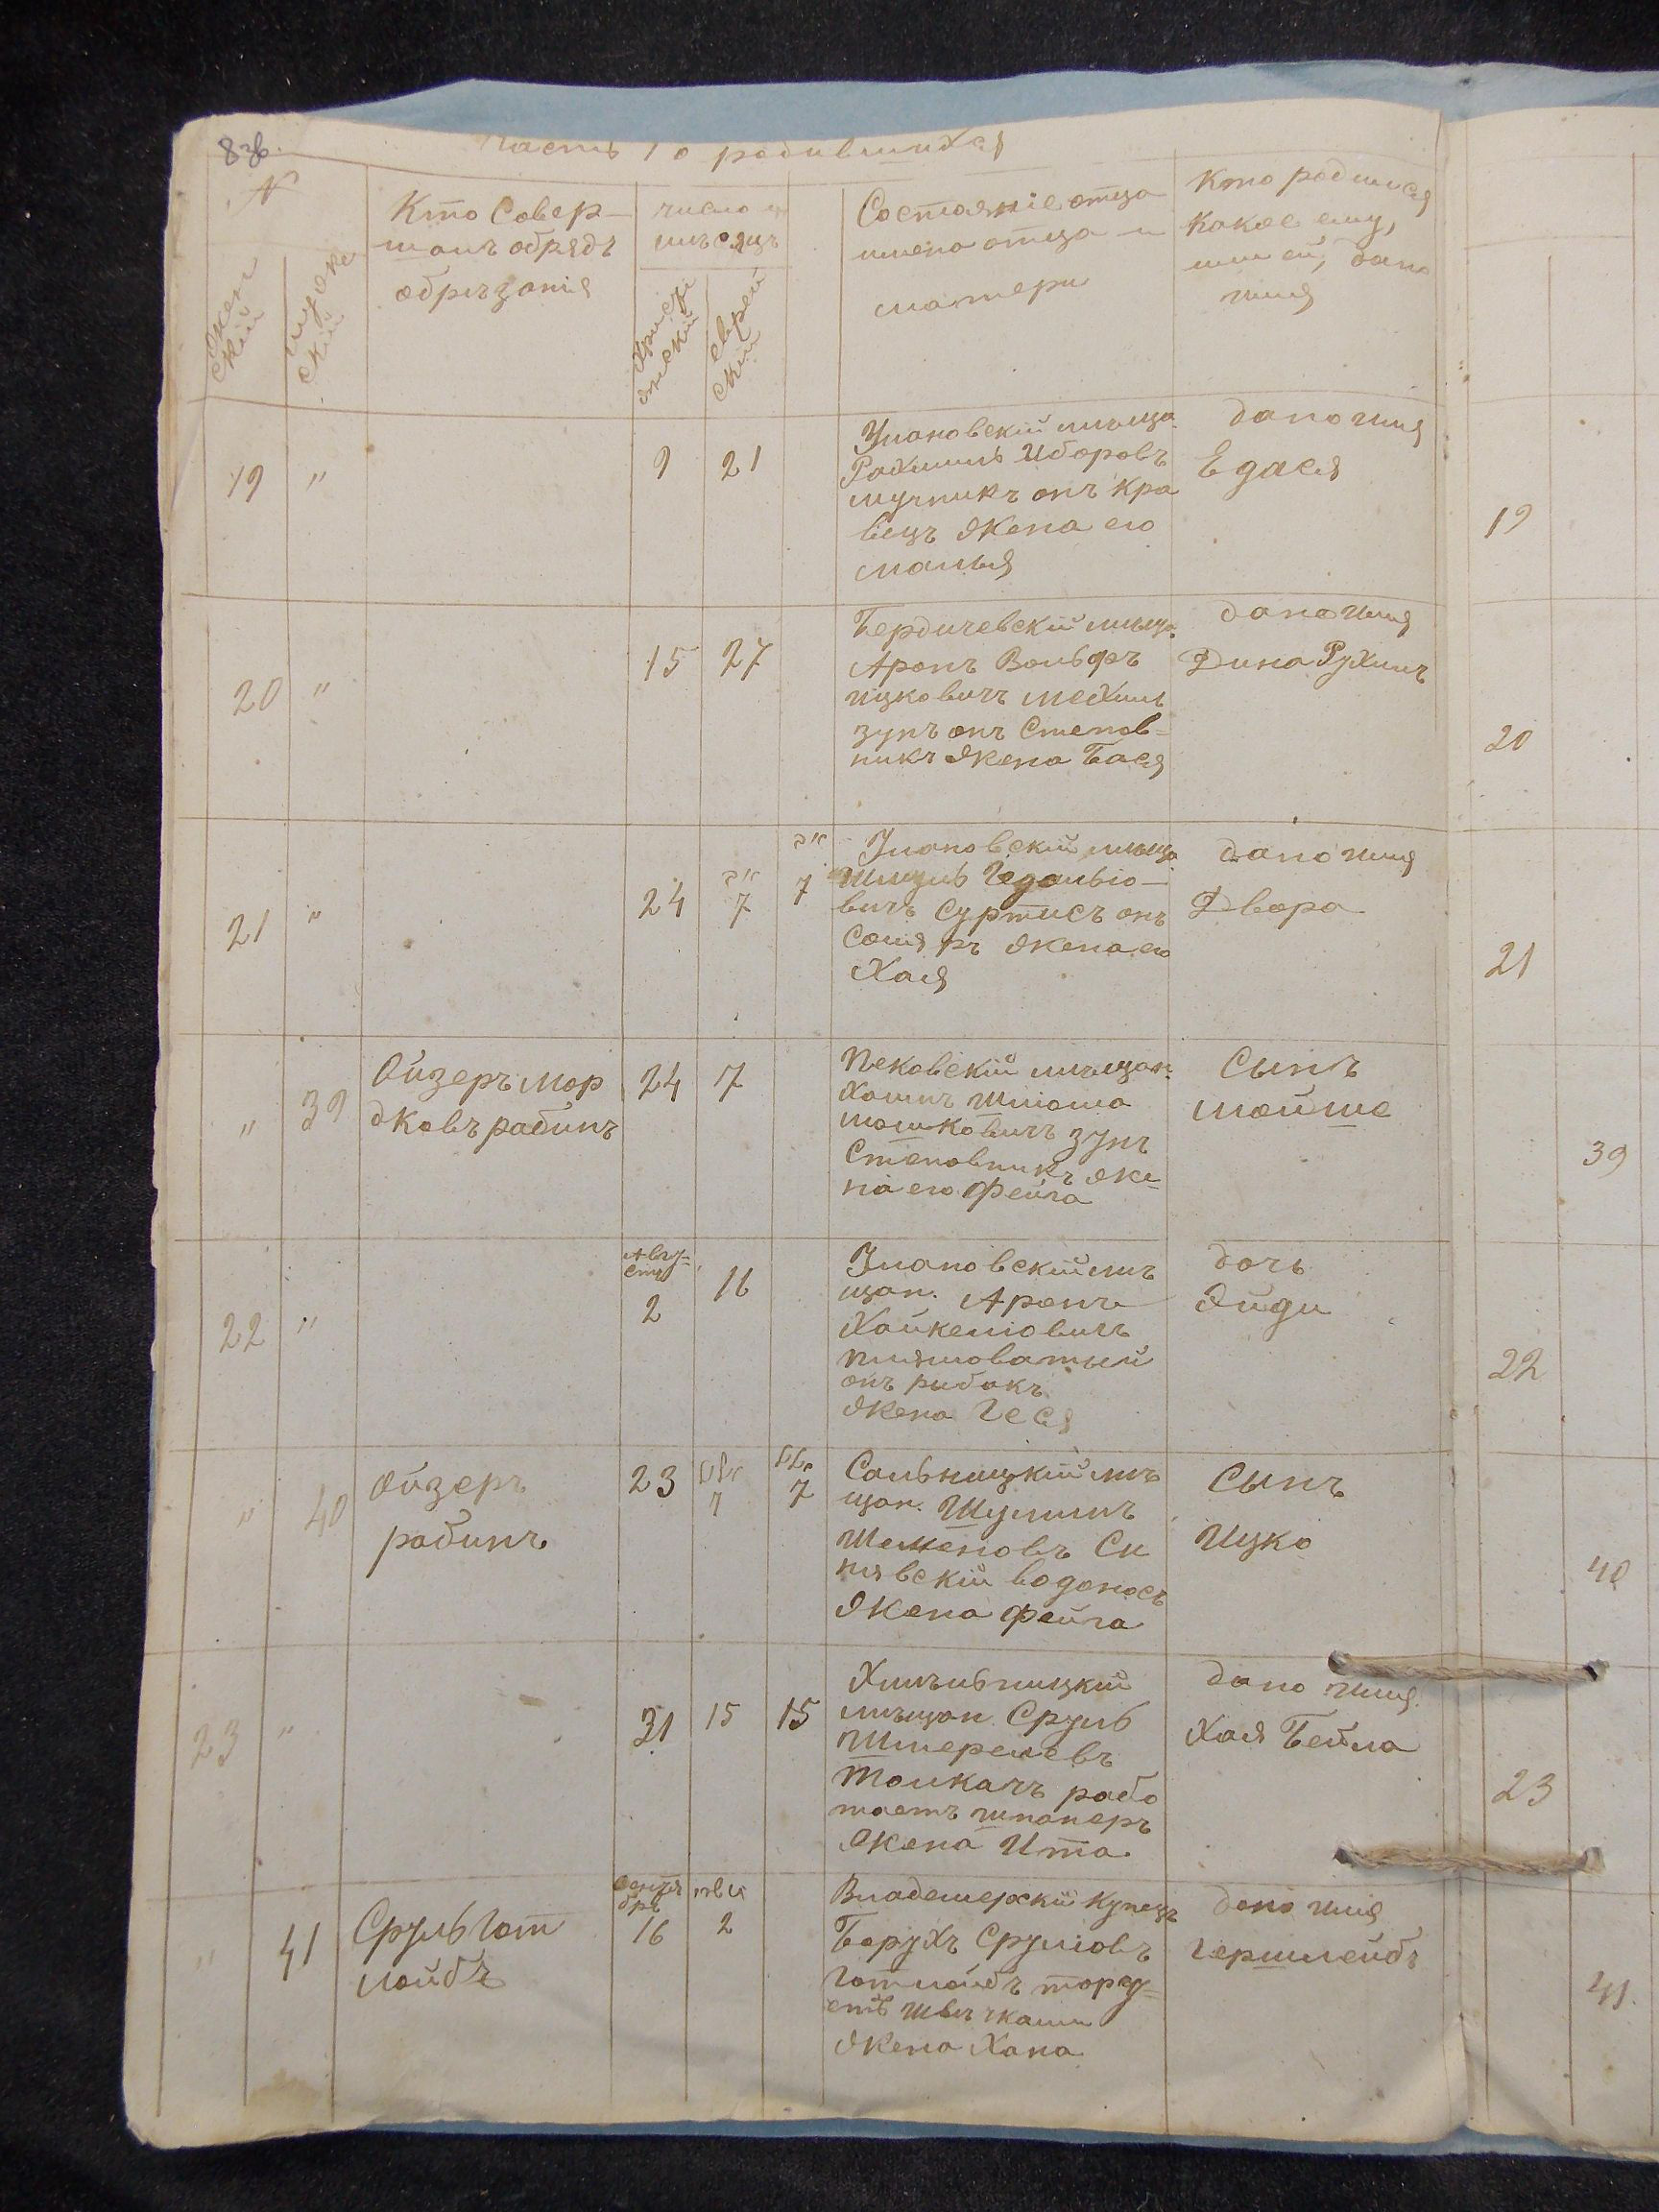 8 зв.
Часть 1 о родившихся
№
женский
мужеский
Кто Совер-
шалъ обрядъ
обрѣзанія
число и
мѣсяцъ
Христі
янскій
еврей
скій
Состояніе отца
имена отца и
матери
Кто родился
какое ему,
или ей, дано
имя
19 " 9 21
Улановскій мѣща.
Рахмиль
мучникъ онъ кра
вецъ жена его
Малья
дано имя
Едася
19
20 " 15 27
Бердичевскій мѣща.
Аронъ Вольфъ
ицковичъ мехиль
зунъ онъ Степов-
никъ жена Бася
дано имя
Дина Рухиль
20
21 " 24 7 7
Улановскій мѣща
Шмуль Гедалью-
вичъ Суртисъ онъ
Столяръ жена его
Хая
дано имя
Двора
21
" 39
Ойзеръ Мор
дковъ рабинъ
24 7
Пековскій мѣщан.
Хаимъ Шлома
мошковичъ зунъ
Степовникъ же-
на его Фейга
Сынъ
мойше
39
22 "
Авгу-
стъ
2 16
Улановскій мѣ
щан. Аронъ
Хайкелювичъ
онъ рыбакъ
жена Геся
дочь
Эйди
22
" 40
Ойзеръ
рабинъ
23 7 7
Сальницкій мѣ
щан. Шулимъ
Шмилюковъ Си
нявскій водоносъ
Жена Фейга
Сынъ
Ицко
40
23 " 31 15 15
Хмѣльницкій
мѣщан. Сруль
Шмерелевъ
Толкачъ рабо
таетъ
жена Ита.
дано имя.
Хая Бейла
23
" 41
Сруль Гот
лойбъ
Сентя
брѣ
16 2
Владемерскій Купецъ
Борухъ Сруліовъ
Готлойбъ торгу-
етъ свѣчками
жена Хана
дано имя
Гершлейбъ
41.